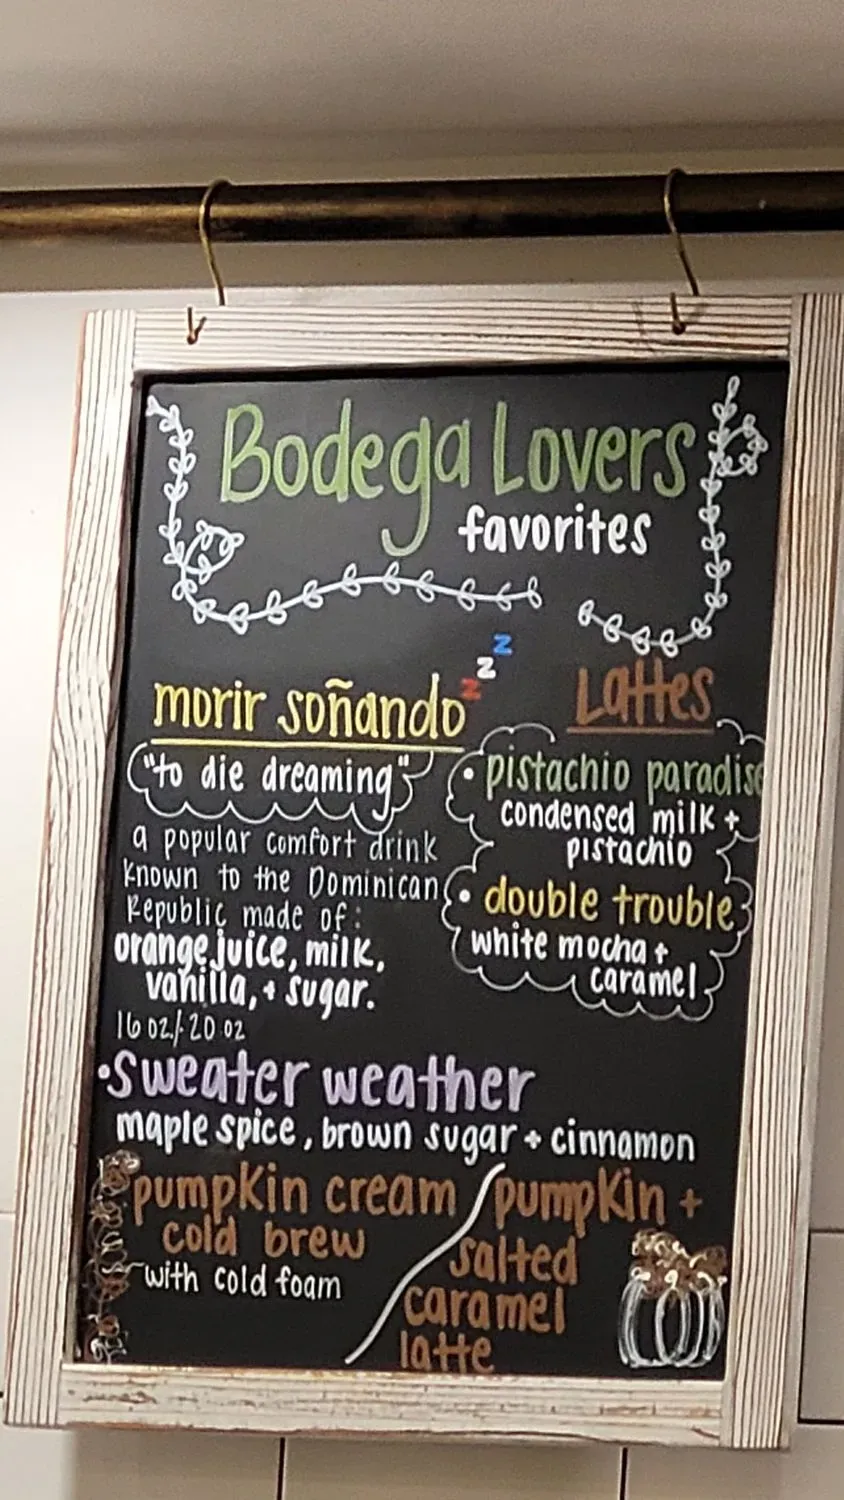 Bodega Lovers
favorites
z
z
z
morir soñando
"to die dreaming"
a popular comfort drink
known to the Dominican
Republic made of:
orange juice, milk,
vanilla, + sugar.
16 oz./20 oz
Lattes
• pistachio paradise
condensed milk +
pistachio
• double trouble
white mocha +
caramel
•sweater weather
maple spice, brown sugar + cinnamon
pumpkin cream
cold brew
with cold foam
pumpkin +
salted
caramel
latte